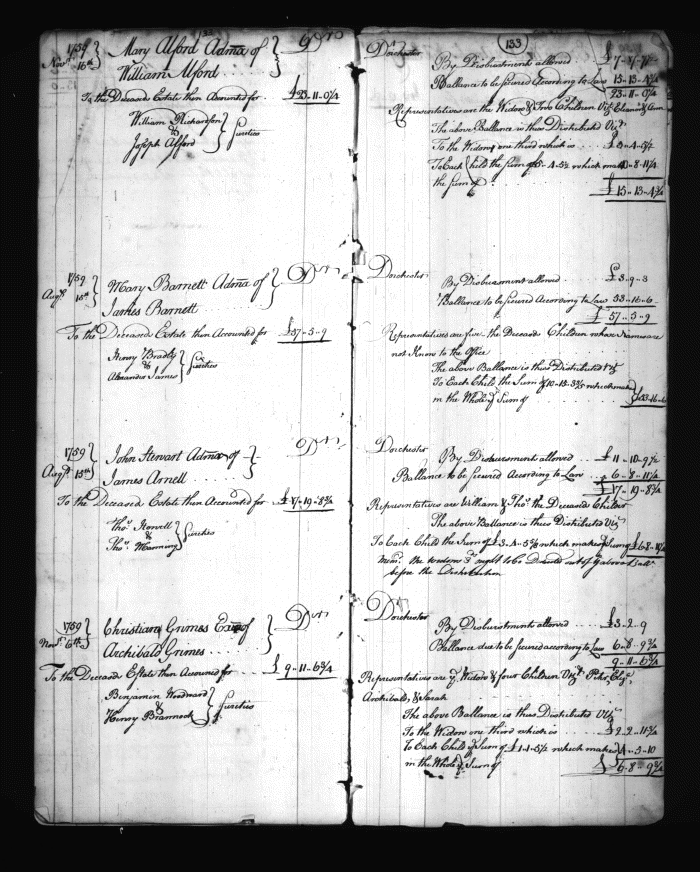 133
1759
Novr. 16th } Mary Alford Admx of
William Alford
Dr
To the Deceaseds Estate then Accounted for £23-11-0¼
William Richardson
&
Joseph Alford } Sureties
1759
Augst. 15th } Mary Barnett Admx of
James Barnett
Dr
To the Deceaseds Estate then Accounted for £57-5-9
Henry Bradly
&
Alexander James } Sureties
1759
Augst. 15th } John Stewart Admr of
James Arnell
Dr
To the Deceaseds Estate then Accounted for £17-19-8¾
Thos.
&
Thos. Manning } Sureties
1759
Novr. 6th } Christian Grimes Exx of
Archibald Grimes
Dr
To the Deceaseds Estate then Accounted for £9-11-6¾
Benjamin Woodward
&
Henry } Sureties
133
Dorchester
By Disbursment allowed £7-
Ballance to be secured According to Law 15-13-4¾
23-11-0¼
Representatives are the Widow & Two Children Vizt. Eleanor & Ann
The above Ballance is thus Distributed Vizt.
To the Widow one third which is £5-4-5½
To Each Child the Sum of £5-4-5½ which makes 10-8-11¼
the Sum of
£15-13-4¾
Dorchester
By Disbursment allowed £3-9-3
Ballance to be secured According to Law 53-16-6
£57-5-9
Representatives are five the Deceaseds Children whose Names are
not Know to the Office
The above Ballance is thus Distributed Vizt.
To Each Child the Sum of 10-15-3½ which make
in the Whole ye Sum of £53-16-6
Dorchester
By Disbursment allowed £11-10-9½
Ballance to be secured According to Law 6-8-11¼
£17-19-8¾
Representatives are William & Thos. the Deceaseds Children
The above Ballance is thus Distributed Vizt.
To Each Child the Sum of £3-4-5⅝ which makes ye Sum of £6-8-11¼
Mem. the widows ought to be Deducted out of ye above Ballce
before the Distribution
Dorchester
By Disbursment allowed £3-2-9
Ballance due to be secured according to Law 6-8-9¾
9-11-6¾
Representatives are ye Widow & four Children Vizt.
Archibald, & Sarah
The above Ballance is thus Distributed Vizt.
To the Widow one third which is £2-2-11¾
To Each Child ye Sum of £1-1-5½ which makes 4-5-10
in the Whole ye Sum of £6-8-9¾